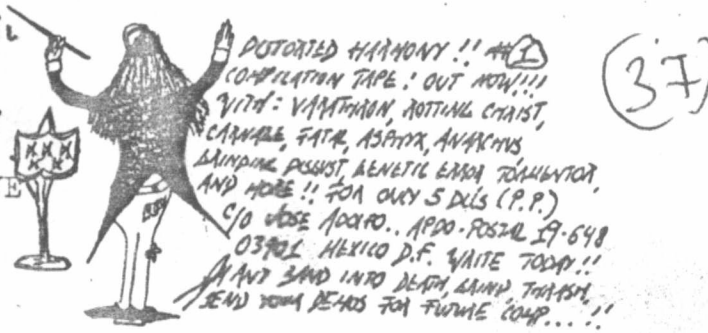 DISTORTED HARMONY !! #1
COMPILATION TAPE! OUT NOW!!!
WITH: VARATHRON, ROTTING CHRIST,
CARNAGE, FATAL, ASPHYX, ANARCHUS
GRINDING DISGUST, GENETIC ERROR TORMENTOR,
AND MORE!! FOR ONLY 5 DLLS (P.P.)
C/O JOSE ADOLFO.. APDO. POSTAL 19-648
03901 MEXICO D.F. WRITE TODAY!!
ANY BAND INTO DEATH, GRIND, THRASH,
SEND YOUR DEMOS FOR FUTURE COMP....!!
37